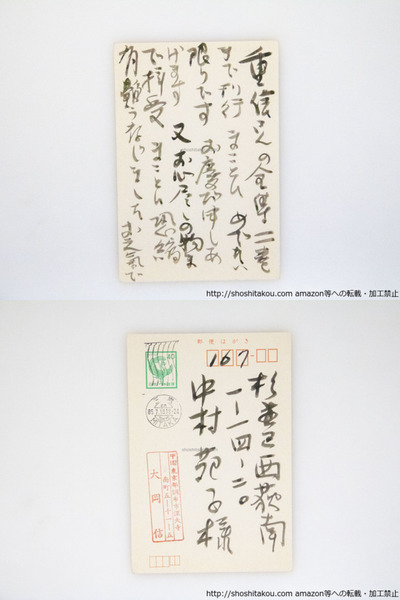 重信さんの全集二巻
まで刊行 まことに めでたい
限りです お慶び申しあ
げます 又お心尽しの物まで
拝受 まことに恐縮
お元気で
http://shoshitakou.com amazon等への転載・加工禁止
郵便はがき
167
40
杉並区西荻南
一ー一四ー二〇
中村苑子様
MITAKA
大岡信
http://shoshitakou.com amazon等への転載・加工禁止